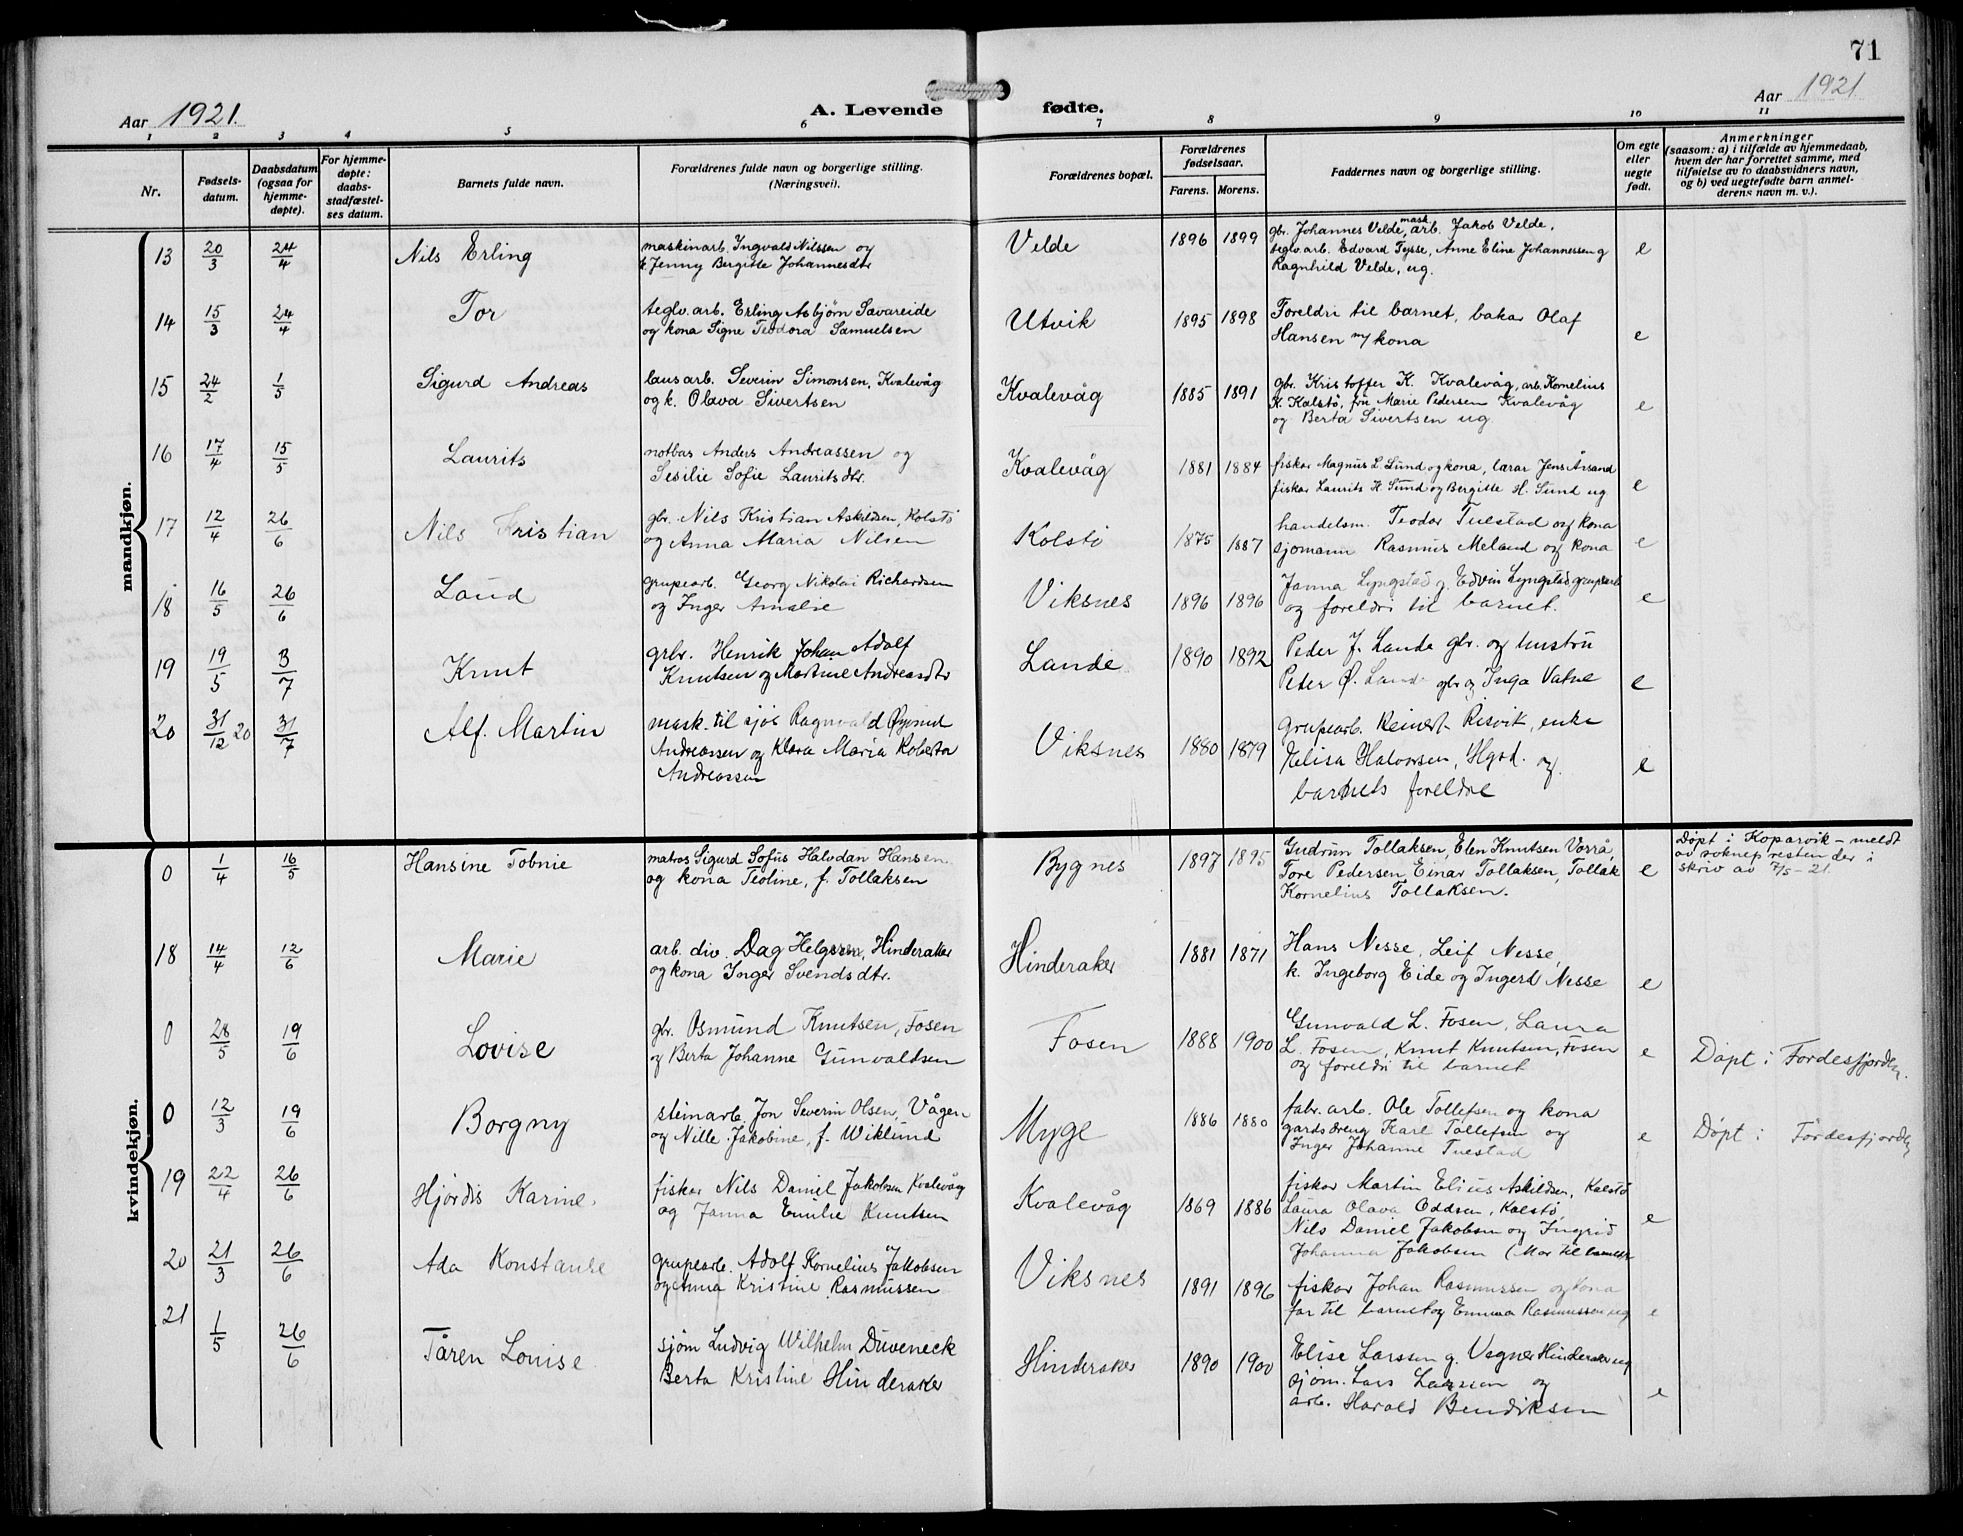 71
Aar 1921.
A. Levende fødte.
Aar 1921
1 2 3 4 5 6 7 8 9 10 11
Nr.
Fødsels-
datum.
Daabsdatum
(ogsaa for
hjemme-
døpte).
For hjemme-
døpte:
daabs-
stadfæstel-
ses datum.
Barnets fulde navn.
Forældrenes fulde navn og borgerlige stilling.
(Næringsvei).
Forældrenes bopæl.
Forældrenes
fødselsaar.
Farens. Morens.
Faddernes navn og borgerlige stilling.
Om egte
eller
uegte
født.
Anmerkninger
(saasom: a) i tilfælde av hjemmedaab,
hvem der har forrettet samme, med
tilføielse av to daabsvidners navn,
og b) ved uegtefødte barn anmel-
derens navn m. v.).
mandkjøn.
13 20/3 24/4 Nils Erling
maskinarb. Ingvald Nilssen og
k. Jenny Bergitte Johannesdtr
Velde 1896 1899
gbr. Johannes Velde, mask. arb. Jakob Velde,
teglv. arb. Edvard Tysse, Anne Eline Johannessen g
Ragnhild Velde, ug.
e
14 15/3 24/4 Tor
teglv. arb. Erling Asbjørn Savareide
og kona Signe Teodora Samuelsen
Utvik 1895 1898
Foreldri til barnet, bakar Olaf
Hansen m/ kona
e
15 24/2 1/5 Sigurd Andreas
lausarb. Severin Simonsen, Kvalevåg
og k. Olava Sivertsen
Kvalevåg 1885 1891
gbr. Kristoffer K. Kvalevåg, arb. Kornelius
K. Kalstø, fru Marie Pedersen Kvalevåg
og Berta Sivertsen ug.
e
16 17/4 15/5 Laurits
notbas Anders Andreassen og
Sesilie Sofie Lauritsdtr.
Kvalevåg 1881 1884
fiskar Magnus L. Lund og kona, lærar Jens Årsand
fiskar Laurits H. Sund og Bergitte H. Sund ug
e
17 12/4 26/6 Nils Kristian
gbr. Nils Kristian Askildsen, Kolstø
og Anna Maria Nilsen
Kolstø 1875 1887
handelsm. Teodor Tuestad og kona
sjømann Rasmus Meland og kona
e
18 16/5 26/6
grupearb. Georg Nikolai Richardsen
og Inger Amalie
Viksnes 1896 1896
Janna Lyngstad g. Edvin Lyngstad grupearb
og foreldri til barnet.
e
19 19/5 3/7 Knut
grbr. Henrik Johan Adolf
Knutsen og Martine Andreasdtr
Lande 1890 1892
Peder J. Lande gbr. og hustru
Peder Ø. Lande gbr og Inga Vatne
e
20 31/12 20 31/7 Alf. Martin
mask. til sjøs Ragnvald Øyvind
Andreassen og Klara Maria Roberta
Andreassen
Viksnes 1880 1879
Grupearb. Reinert Risvik, enke
Helisa Halvorsen, Hgsd. og
barnets foreldre
e
kvindekjøn.
0 1/4 16/5 Hansine Tobnie
matros Sigurd Sofus Halvdan Hansen
og kona Teoline, f. Tollaksen
Bygnes 1897 1895
Gudrun Tollaksen, Elen Knutsen Vorrå,
Tore Pedersen, Einar Tollaksen, Tollak
Kornelius Tollaksen.
e
Døpt i Koparvik – meldt
av soknepresten der i
skriv av 7/5 – 21.
18 14/4 12/6 Marie
arb. div. Dag Helgsen, Hinderaker
og kona Inger Svendsdtr.
Hinderaker 1881 1871
Hans Nesse, Leif Nesse,
k. Ingeborg Eide og Ingerd Nesse
e
0 28/5 19/6 Lovise
gbr. Osmund Knutsen, Fosen
og Berta Johanne Gunvaldsen
Fosen 1888 1900
Gunvald L. Fosen, Laura
L. Fosen, Knut Knutsen, Fosen
og foreldri til barnet
e
Døpt i Førdesfjorden.
0 12/3 19/6 Borgny
steinarb. Jon Severin Olsen, Vågen
og Nille Jakobine, f. Wiklund
Myge 1886 1880
fabr. arb. Ole Tollefsen og kona
gardsdreng Karl Tollefsen og
Inger Johanne Tuestad
e
Døpt i Førdesfjorden
19 22/4 26/6 Hjørdis Karine.
fiskar Nils Daniel Jakobsen Kvalevåg
og Janna Emilie Knutsen
Kvalevåg 1869 1886
fiskar Martin Elius Askildsen, Kalstø
Laura Olava Oddsen, Kalstø,
Nils Daniel Jakobsen og Ingrid
Johanna Jakobsen (Mor til barnet)
e
20 21/3 26/6 Ada Konstanse
Grupearb. Adolf Kornelius Jakobsen
og Anna Kristine Rasmussen
Viksnes 1891 1896
fiskar Johan Rasmussen og kona
far til barnet og Emma Rasmussen ug
e
21 1/5 26/6 Tåren Louise
sjøm Ludvig Wilhelm Düveneck
Berta Kristine Hinderaker
Hinderaker 1890 1900
Elise Larssen g. Vagner Hinderaker ug
sjøm. Lars Larssen og
arb. Harald Bendiksen
e